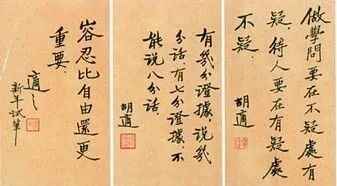 做學問要在不疑處有
疑.待人要在有疑處
不疑.
胡適
有幾分證據說幾
分話.有七分證據.不
能說八分話.
胡適
容忍比自由還更
重要.
適之
新年試筆